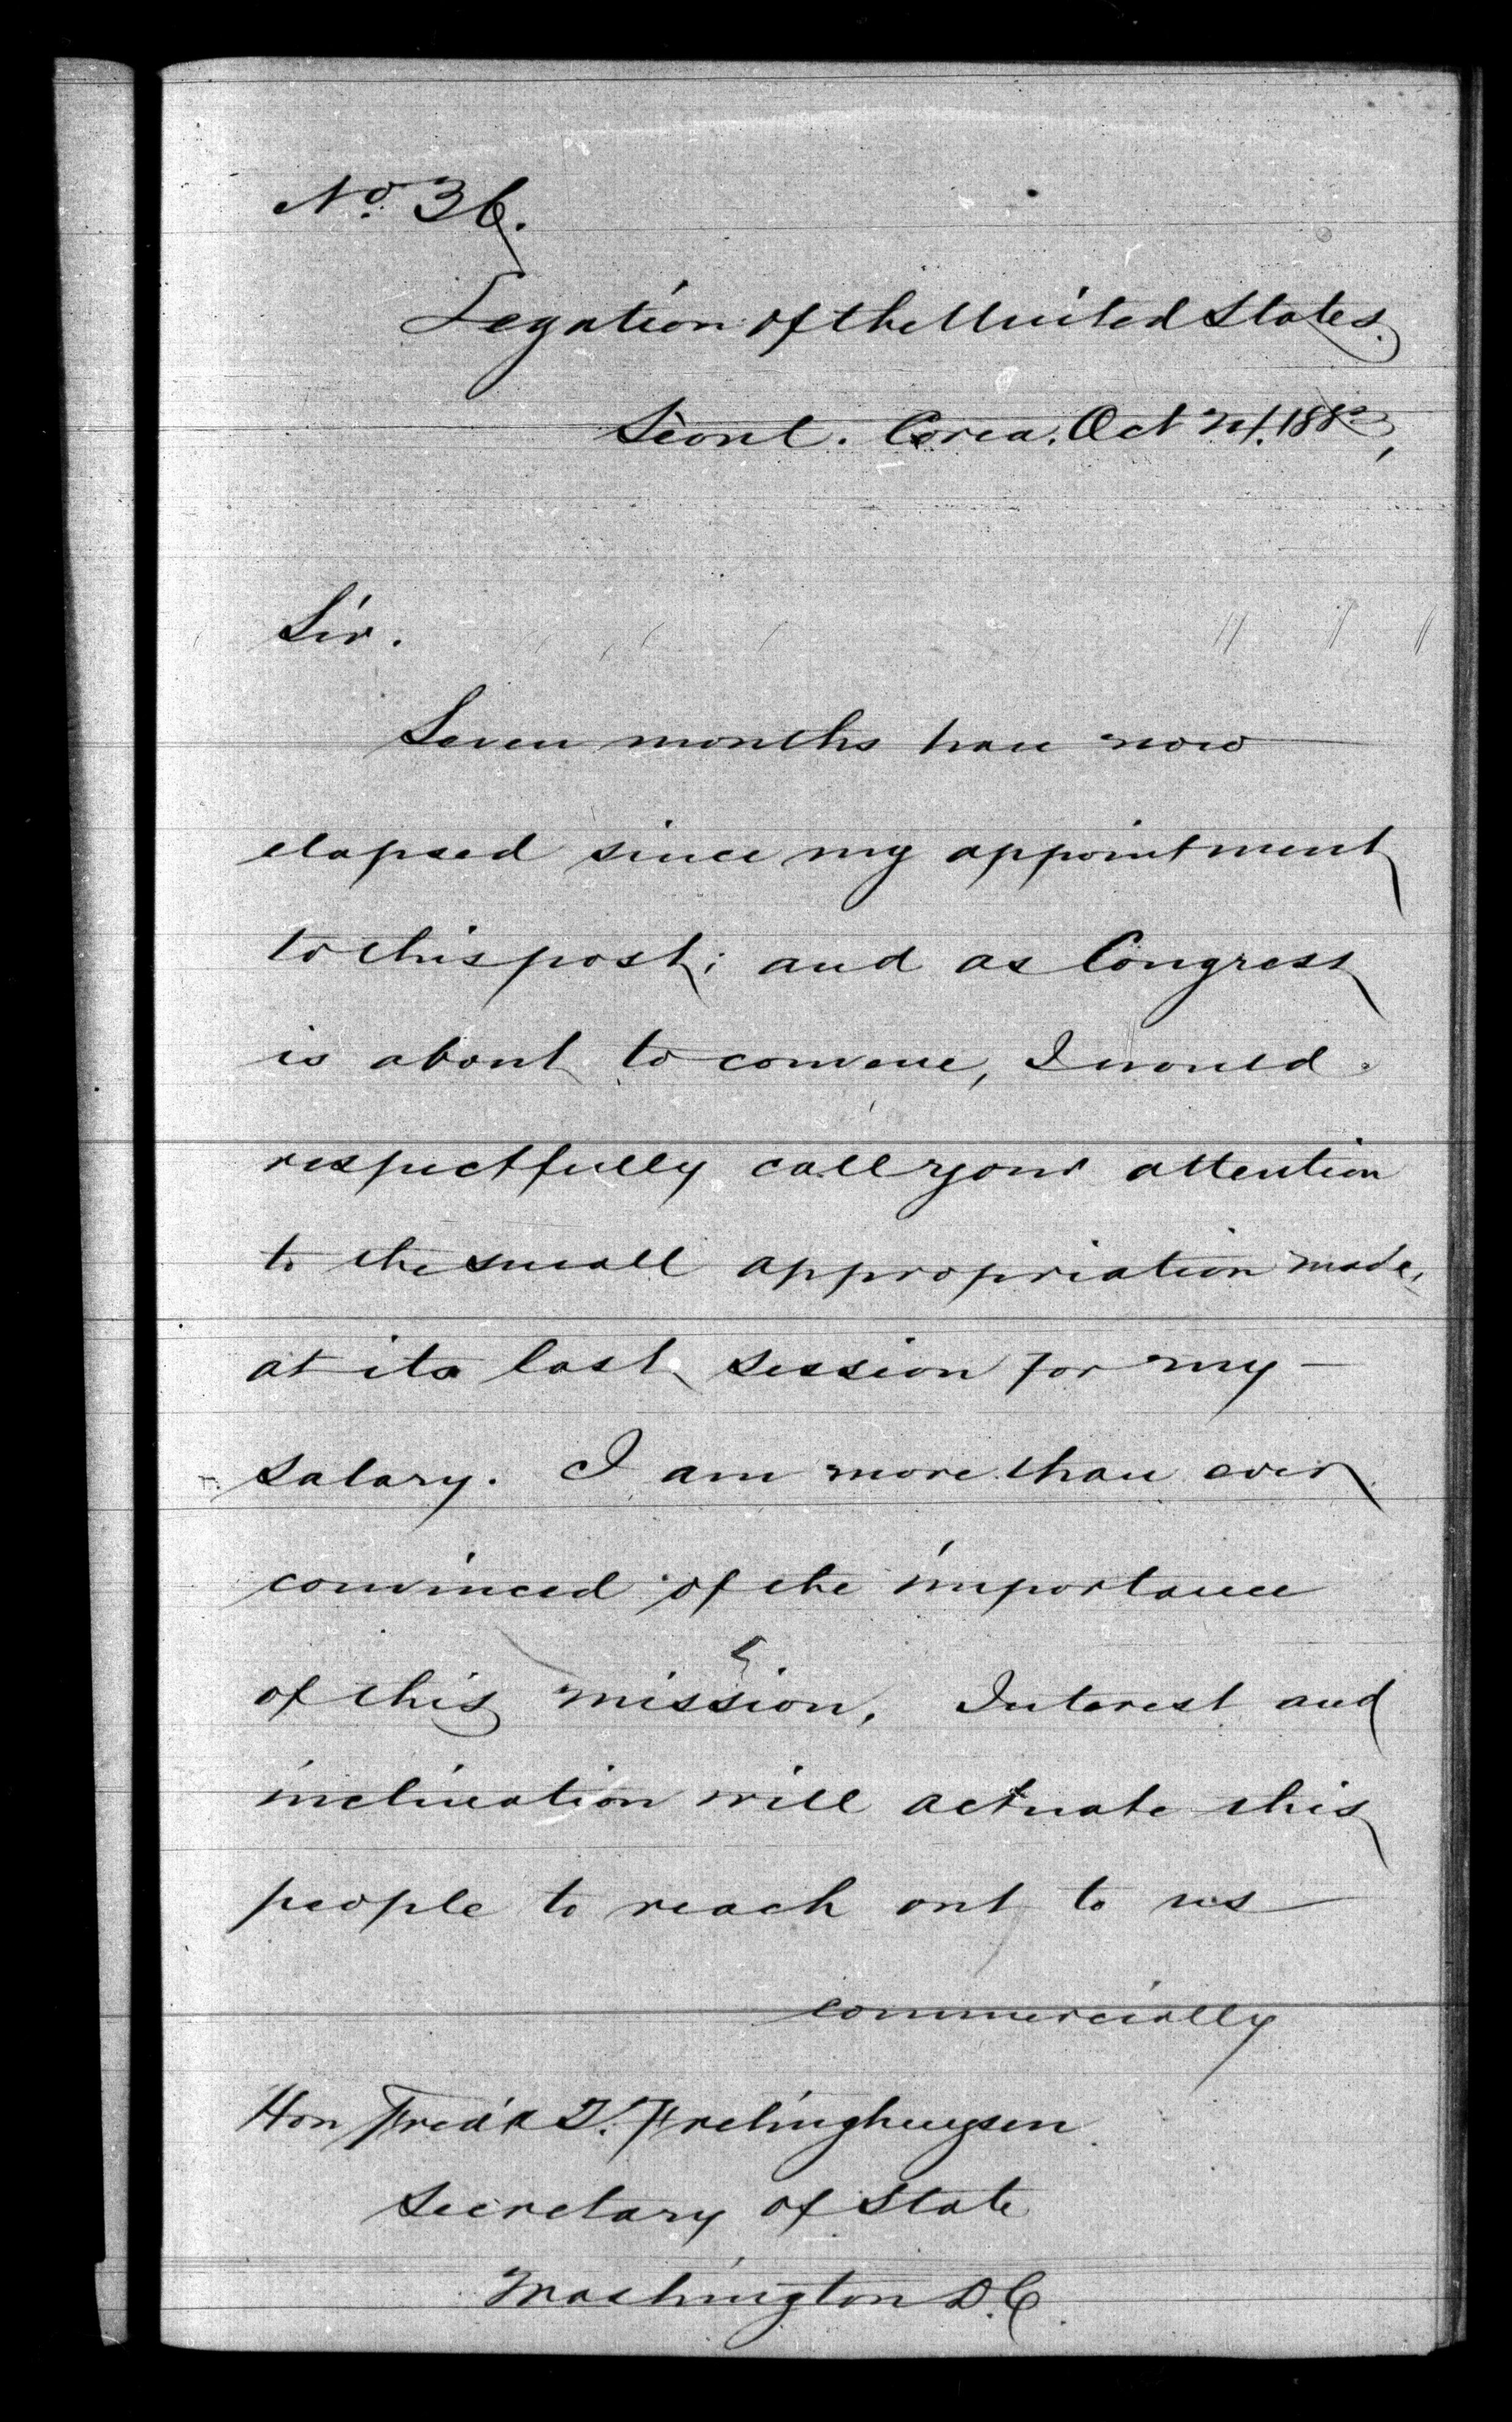 No. 36.
Legation of the United States.
Séoul. Corea. Oct 21. 1883,
Sir.
Seven months have now
elapsed since my appointment
to this post; and as Congress
is about to convene, I would
respectfully call your attention
to the small appropriation made,
at its last session for my
salary. I am more than ever
convinced of the importance
of this mission. Interest and
inclination will actuate this
people to reach out to us
commercially
Hon Fred'k T. Frelinghuysen
Secretary of State
Washington D.C.